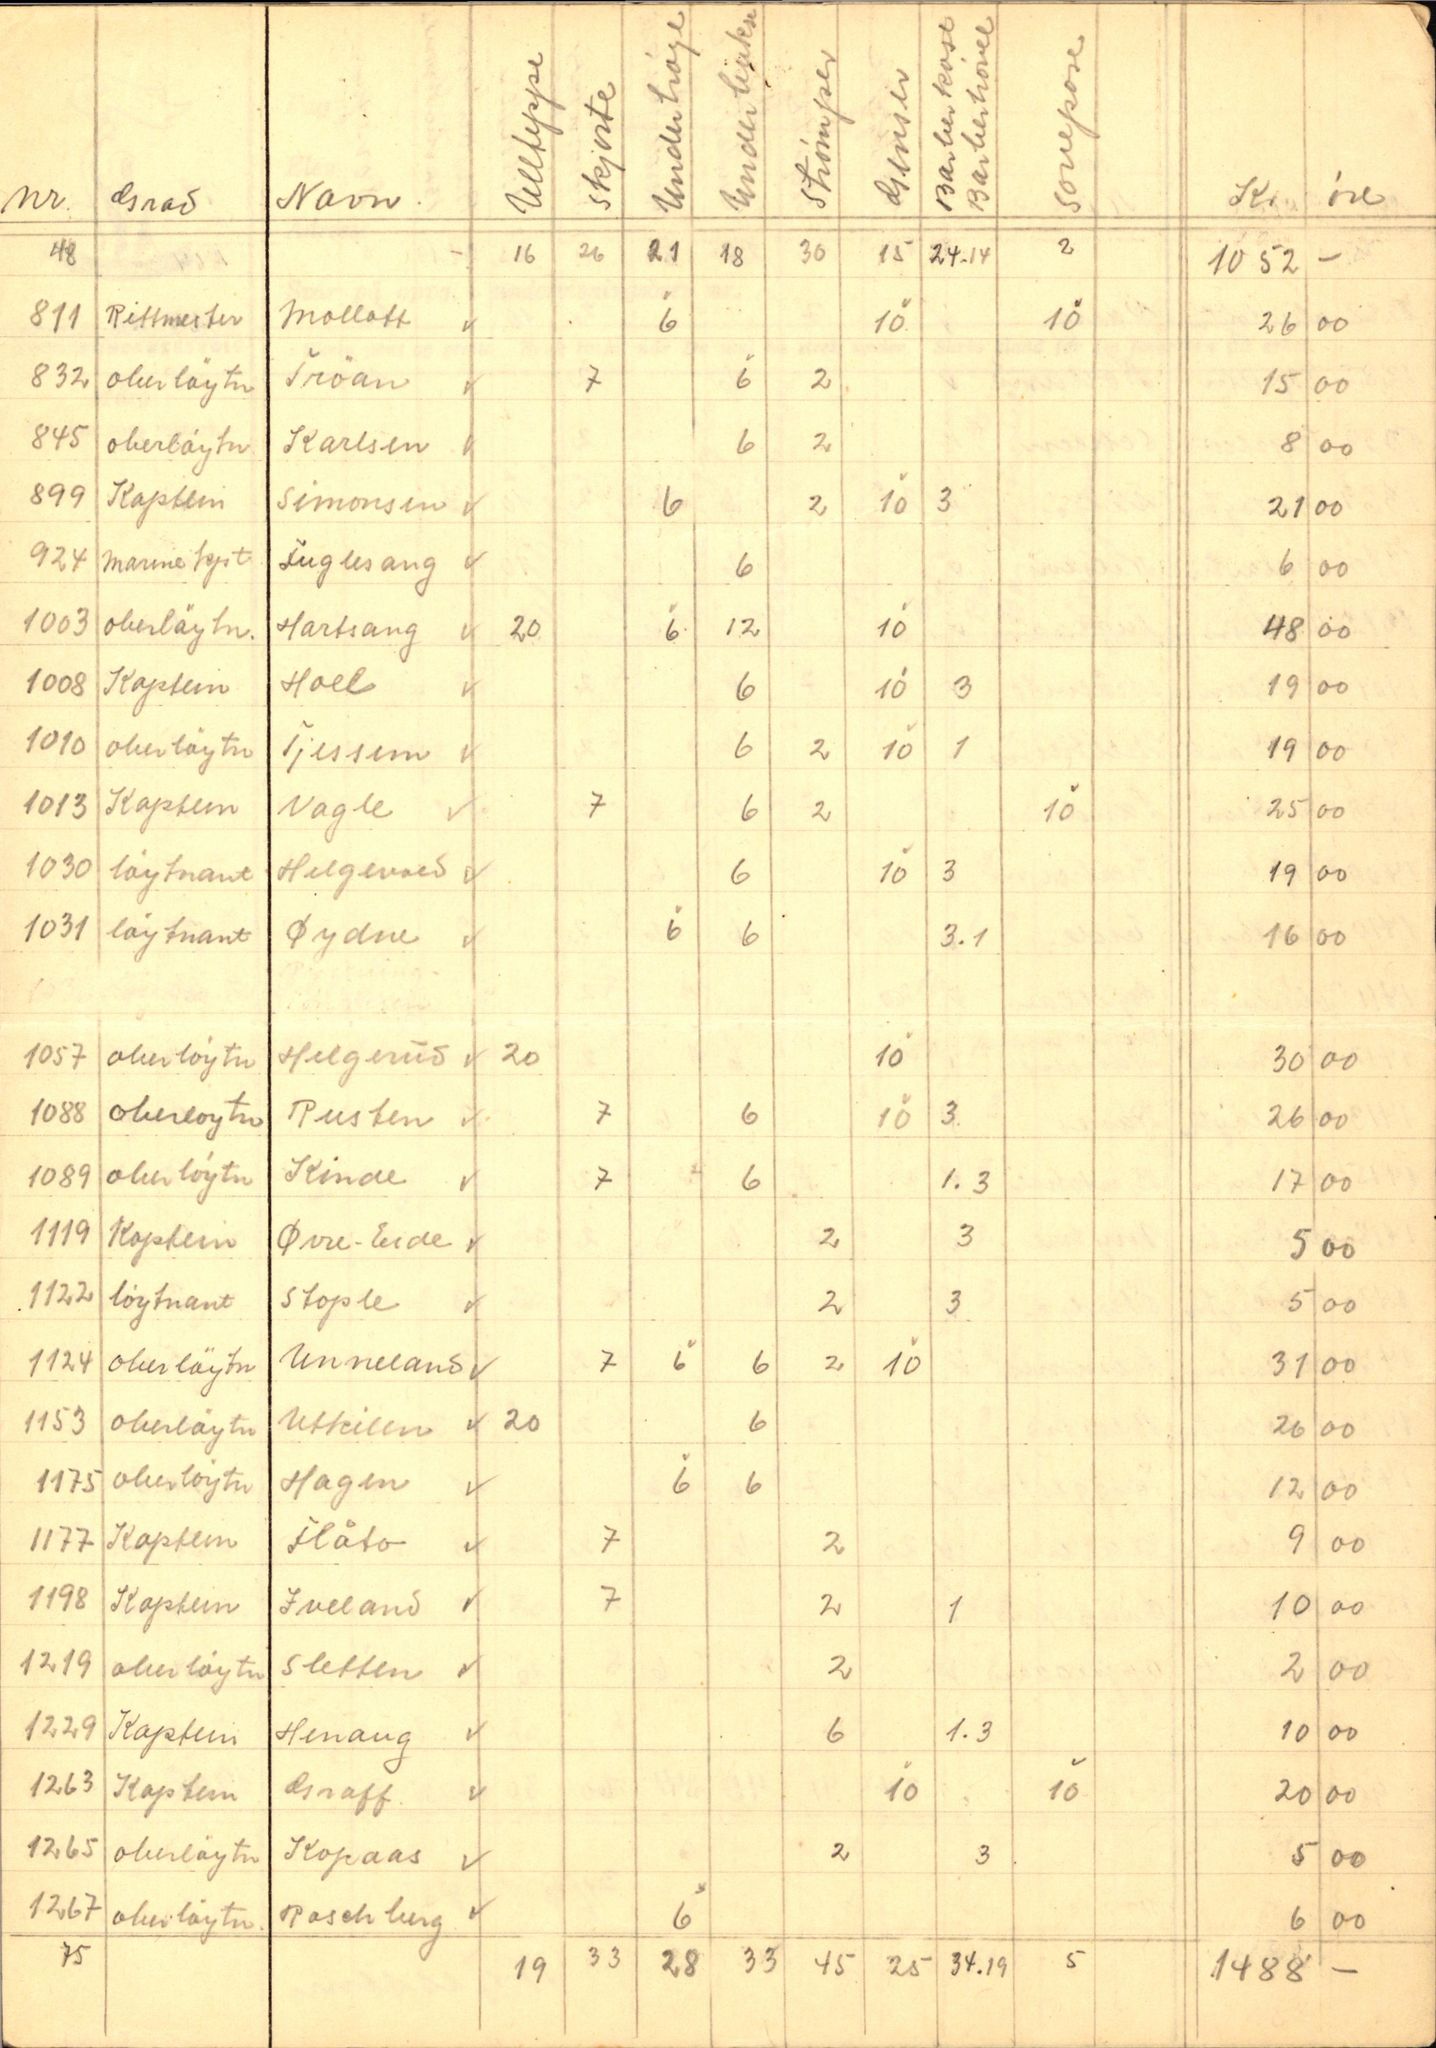 Nr. Grad Navn. Ullteppe Skjorte Undertrøye Underbukse Strömper Genser Barberkost Barberhövel Sovepose Kr. öre
48 - 16 26 21 18 30 15 24-14 2 1052 -
811 Rittmester Mollatt v 6 10 10 26 00
832 oberlöytn Tröan v 7 6 2 15 00
845 oberlöytn Karlsen v 6 2 8 00
899 Kaptein Simonsen v 6 2 10 3 21 00
924 Marine kpt Fuglesang v 6 6 00
1003 oberlöytn. Hartsang v 20 6 12 10 48 00
1008 Kaptein Hoel v 6 10 3 19 00
1010 oberlöytn Tjessem v 6 2 10 1 19 00
1013 Kaptein Vagle v 7 6 2 10 25 00
1030 löytnant Helgevold v 6 10 3 19 00
1031 löytnant Øydne v 6 6 3.1 16 00
1057 oberlöytn Helgerud v 20 10 30 00
1088 oberloytn Rusten v 7 6 10 3 26 00
1089 oberlöytn Kinde v 7 6 1.3 17 00
1119 Kaptein Øvre-Eide v 2 3 5 00
1122 löytnant Stople v 2 3 5 00
1124 oberlöytn Unneland v 7 6 6 2 10 31 00
1153 oberlöytn Utkilen v 20 6 26 00
1175 oberlöytn Hagen v 6 6 12 00
1177 Kaptein Flåto v 7 2 9 00
1198 Kaptein Iveland v 7 2 1 10 00
1219 oberlöytn Sletten v 2 2 00
1229 Kaptein Henaug v 6 1.3 10 00
1263 Kaptein Graff v 10 10 20 00
1265 oberlöytn Kopaas v 2 3 5 00
1267 oberlöytn. Raschberg v 6 6 00
75 19 33 28 33 45 25 34.19 5 1488 -